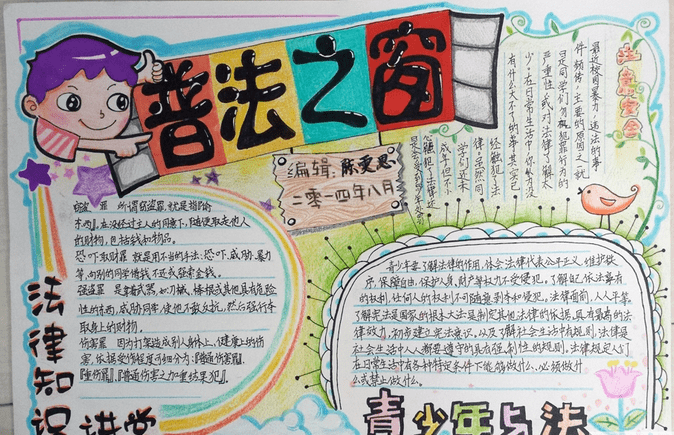 普法之窗
编辑：陈雯思
二零一四年八月
注意安全
最近校园暴力，违法的事
件频传，主要的原因之一就
是同学们忽视犯罪行为的
严重性或对法律了解太
少。在日常生活中，你认为没
有什么大不了的事其实已
经触犯了法
律，虽然同
学们还未
成年但不
窃盗罪 所谓窃盗罪，就是指偷
东西，在没经过主人的同意下，随便取走他人
的财物，包括钱和物品。
恐吓取财罪 就是用不当的手法：恐吓、威胁、暴力
等，向别的同学借钱不还或强索金钱。
强盗罪 是拿武器，如刀械、棒棍或其他具有危险
性的东西，威胁同学，使他不敢反抗，然后强行夺
取身上的财物。
伤害罪 因为打架造成别人身体上、健康上的伤
害，依据受伤程度可细分为：『普通伤害罪』、
『重伤罪』、『普通伤害之加重结果犯』。
法律知识讲堂
青少年要了解法律的作用，体会法律代表公平正义、维护秩
序、保障自由，保护人身、财产等权力不受侵犯，了解自己依法享有
的权利，任何人的权利不可随意剥夺和侵犯，法律面前，人人平等，
了解宪法是国家的根本大法是制定其他法律的依据，具有最高的法
律效力，初步建立宪法意识，以及了解社会生活中有规则，法律是
社会生活中人人都要遵守的具有强制性的规则，法律规定人们
在日常生活中有各种特定条件下能够做什么、必须做什
么或禁止做什么。
青少年与法